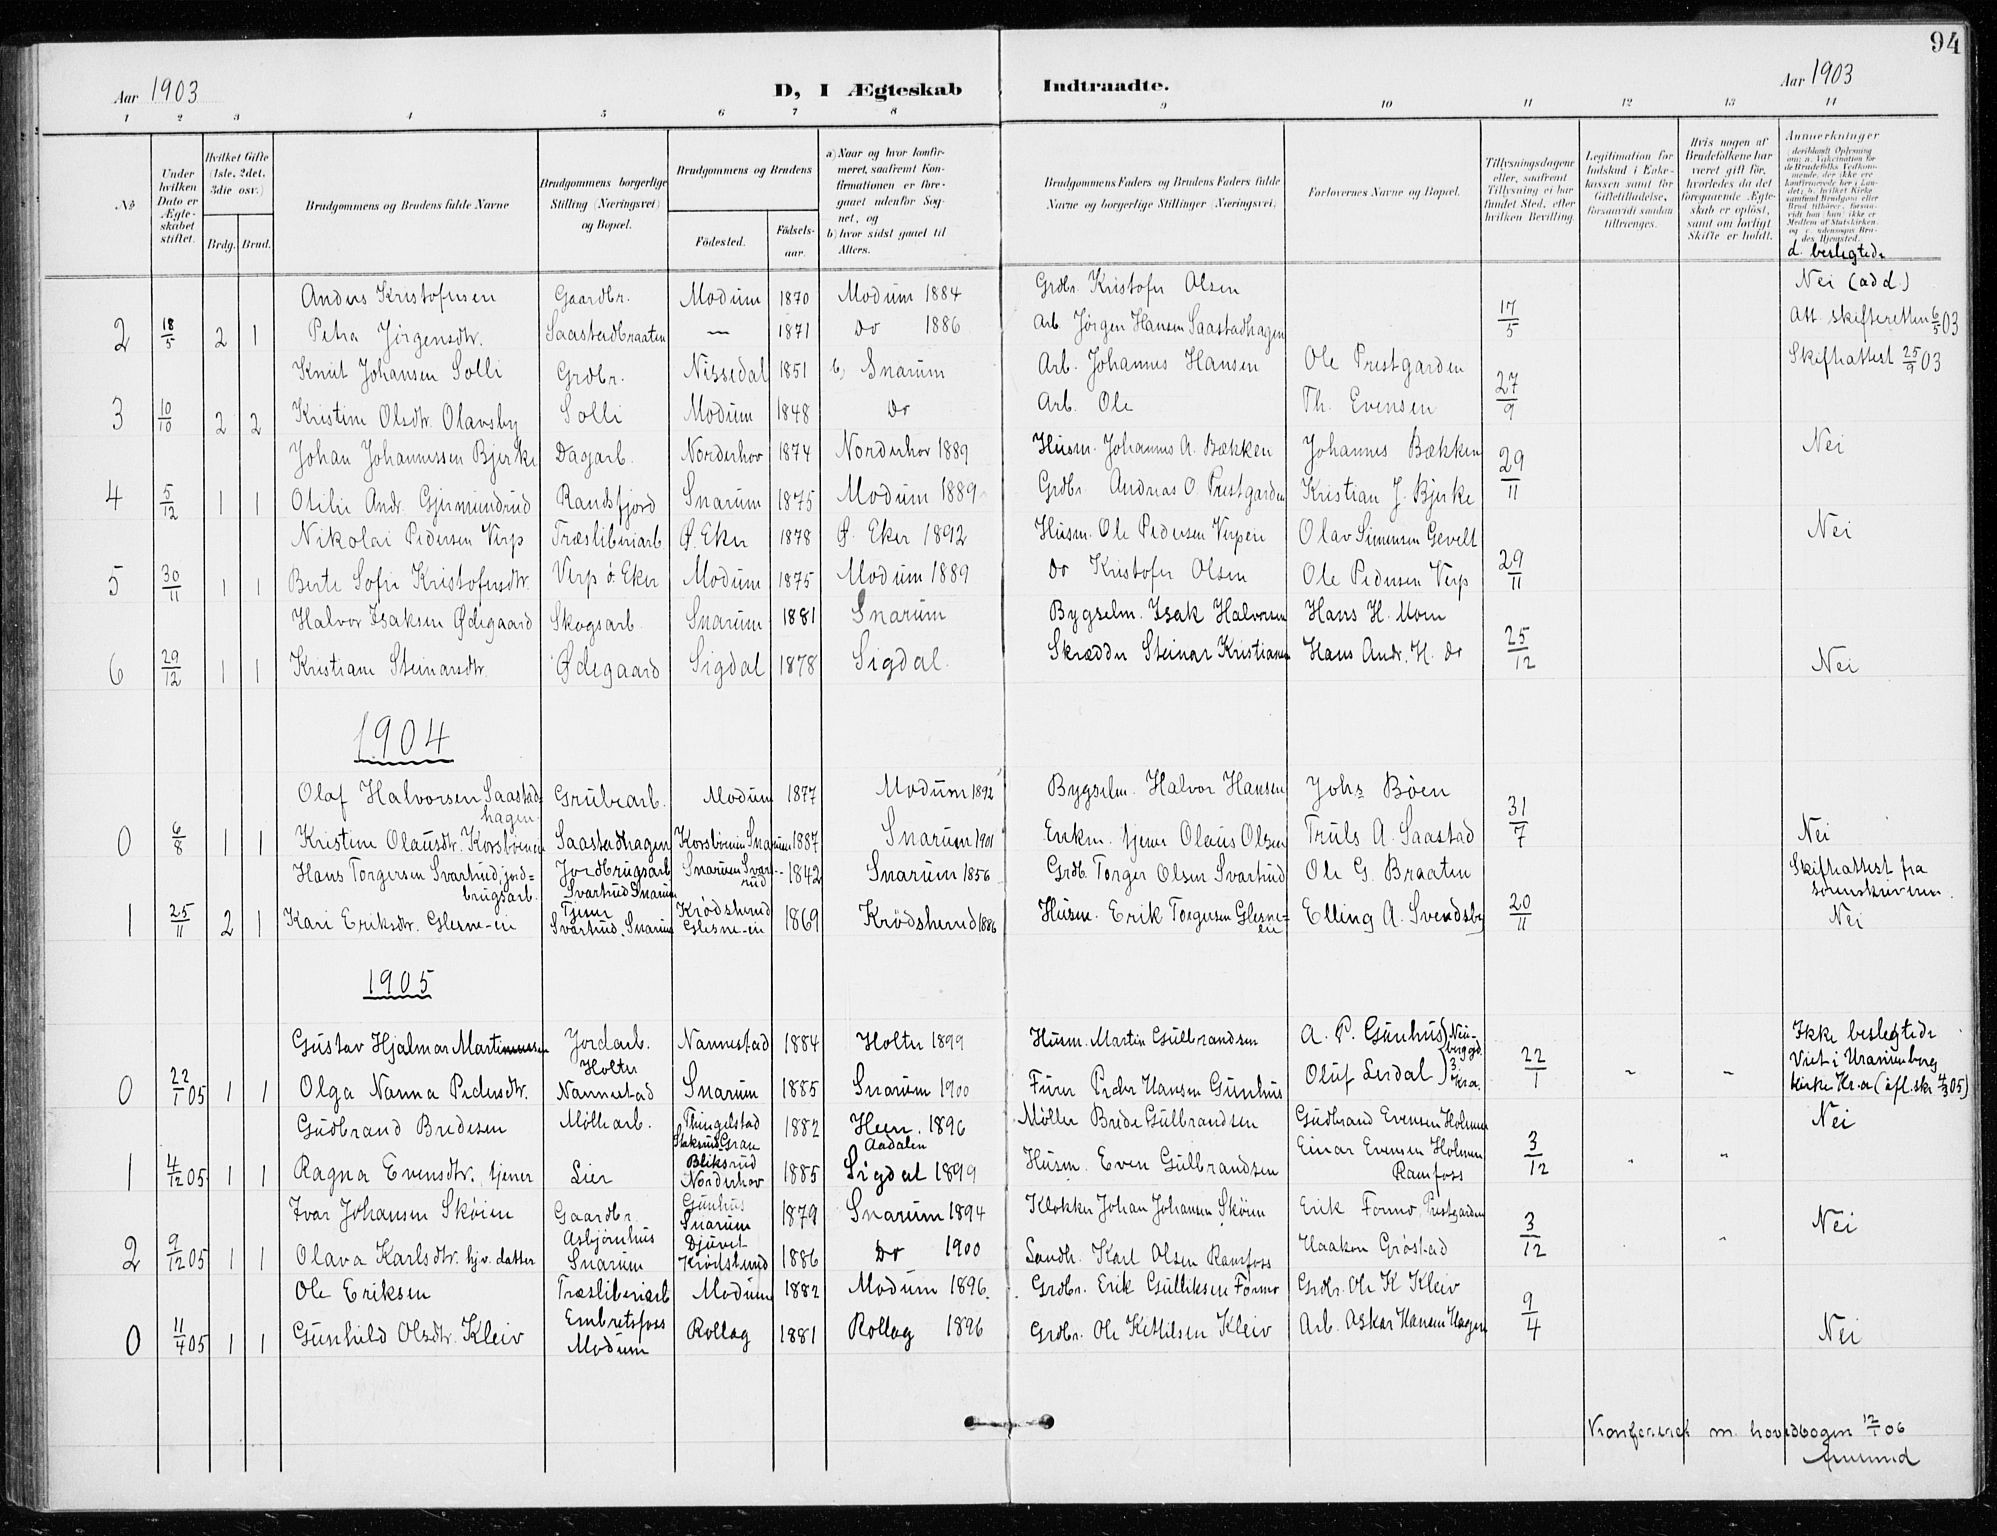 94
Aar 1903
D, I Ægteskab Indtraadte.
Aar 1903
1 2 3 4 5 6 7 8 9 10 11 12 13 14
No
Under hvilken Dato er Ægteskabet stiftet.
Hvilket Gifte (1ste, 2det, 3die osv.)
Brdg. Brud.
Brudgommens og Brudens fulde Navne
Brudgommens borgerlige Stilling (Næringsvei) og Bopæl.
Brudgommens og Brudens
Fødested. Fødselsaar.
a) Naar og hvor konfirmeret, saafremt Konfirmationen er foregaaet udenfor Sognet, og b) hvor sidst gaaet til Alters.
Brudgommens Faders og Brudens Faders fulde Navne og borgerlige Stillinger (Næringsvei)
Forlovernes Navne og Bopæl.
Tillysningsdagene eller, saafremt Tillysning ei har fundet Sted, efter hvilken Bevilling.
Legitimation for Indskud i Enkekassen samt for Giftetilladelse, forsaavidt saadan tiltrænges.
Hvis nogen af Brudefolkene har været gift før, hvorledes da det foregaaende Ægteskab er opløst, samt om lovligt Skifte er holdt.
Anmerkninger
d. beslegtede
Anders Kristofersen Gaardbr. Modum 1870 Modum 1884 Grdbr. Kristofer Olsen Nei (add.)
2 18/5 2 1 Petra Jørgensdtr. Saastadbraaten — 1871 do 1886 Arb. Jørgen Hansen Saastadhagen 17/5 Att. skifteretten 6/5 03
Knut Johansen Solli Grdbr. Nissedal 1851 b) Snarum Arb. Johannes Hansen Ole Prestgarden Skifteattest 25/9 03
3 10/10 2 2 Kristine Olsdtr. Olavsby Solli Modum 1848 do Arb. Ole Th. Evensen 27/9
Johan Johannessen Bjerke Dagarb. Norderhov 1874 Norderhov 1889 Husm. Johannes A. Bækken Johannes Bækken Nei
4 5/12 1 1 Otilie Andr. Gjermundrud Randsfjord Snarum 1875 Modum 1889 Grdbr Andreas O Prestgarden Kristian J. Bjerke 29/11
Nikolai Pedersen Verp Træsliberiarb Ø. Eker 1878 Ø. Eker 1892 Husm. Ole Pedersen Verpen Olav Simensen Gevelt Nei
5 30/11 1 1 Berte Sofie Kristofersdtr. Verp ø. Eker Modum 1875 Modum 1889 do Kristofer Olsen Ole Pedersen Verp 29/11
Halvor Isaksen Ødegaard Skogsarb. Snarum 1881 Snarum Bygselm. Isak Halvorsen Hans H. Moen
6 29/12 1 1 Kristiane Steinarsdtr. Ødegaard Sigdal 1878 Sigdal. Skrædder Steinar Kristiansen Hans Andr. H. do 25/12 Nei
1904
Olaf Halvorsen Saastadhagen Grubearb. Modum 1877 Modum 1892 Bygselm. Halvor Hansen Johs Bøen
0 6/8 1 1 Kristine Olausdtr. Korsbøenen Saastadhagen Korsbøenen Snarum 1887 Snarum 1901 Enkm. tjener Olaus Olsen Truls A. Saastad 31/7 Nei
Hans Torgersen Svartrud, jordbrugsarb. Jordbrugsarb Svartrud Snarum Snarum Svartrud 1842 Snarum 1856 Grdb. Torger Olsen Svartrud Ole G. Braaten Skifteattest fra sorenskriveren.
1 25/11 2 1 Kari Eriksdtr. Glesne-eie Tjener Svartrud, Snarum Krødsherred Glesne-eie 1869 Krødsherred 1886 Husm. Erik Torgersen Glesne-eie Elling A. Svendsby 20/11 Nei
1905
Gustav Hjalmar Martinussen Jordarb. Nannestad 1884 Holter 1899 Husm. Martin Gulbrandsen A. P. Gunhus Ikke beslegtede
0 22/1 05 1 1 Olga Nanna Pedersdtr. Holter Nannestad Snarum 1885 Snarum 1900 Furer Peder Hansen Gunhus Oluf Lerdal 3 Kr.a. 22/1 Viet i Uranienborg kirke Kr.a (efl. skr 4/3 05)
Gudbrand Bredesen Møllearb. Thingelstad Gran 1882 Heen. 1896 Aadalen Møller Brede Gulbrandsen Gudbrand Evensen Holmen Nei
1 4/12 05 1 1 Ragna Evensdtr. tjener Lier Bliksrud Norderhov 1885 Sigdal 1899 Husm. Even Gulbrandsen Einar Evensen Holmen Ramfoss 3/12
Ivar Johansen Skøien Gaardbr. Gunhus Snarum 1879 Snarum 1894 Klokker Johan Johansen Skøien Erik Formo, Prestgarden Nei
2 9/12 05 1 1 Olava Karlsdtr. hjv. datter Asbjørnhus Snarum Djuvet Krødsherred 1886 do 1900 Landh. Karl Olsen Ramfoss Haakon Grøstad 3/12
Ole Eriksen Træsliberiarb Modum 1882 Modum 1896. Grdbr. Erik Gulliksen Formo Grdbr. Ole K Kleiv
0 11/4 05 1 1 Gunhild Olsdtr. Kleiv Embretsfoss Modum Rollag 1881 Rollag 1896 Grdbr. Ole Kittilsen Kleiv Arb. Oskar Hansen Hagen 9/4 Nei
Konfereret m. hovedbogen 12/1 06